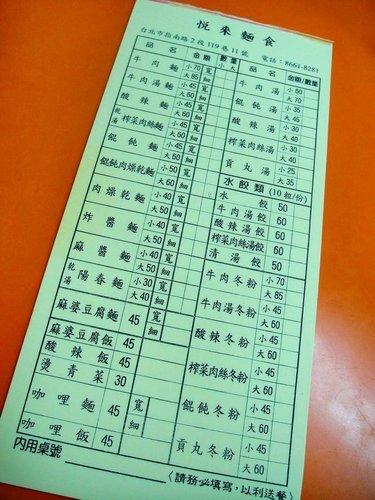 悅來麵食
台北市指南路2段119巷11號 電話:8661-8281
品名 金額 數量
小 大
牛肉麵 小70 大85 寬 細
牛肉湯麵 小45 大60 寬 細
酸辣麵 小45 大60 寬 細
乾 湯 榨菜肉絲麵 小45 大60 寬 細
餛飩麵 小45 大60 寬 細
餛飩肉燥乾麵 大60 寬 細
肉燥乾麵 小40 大50 寬 細
炸醬麵 小40 大50 寬 細
麻醬麵 小40 大50 寬 細
乾 湯 陽春麵 小30 大40 寬 細
麻婆豆腐麵 45 寬 細
麻婆豆腐飯 45
酸辣飯 45
燙青菜 30
咖哩麵 45 寬 細
咖哩飯 45
內用桌號
品名 金額/數量
牛肉湯 小50 大70
餛飩湯 小35 大40
酸辣湯 小30 大40
榨菜肉絲湯 小30 大40
貢丸湯 小25 大35
水餃類(10粒/份)
水餃 50
牛肉湯餃 60
酸辣湯餃 60
榨菜肉絲湯餃 60
清湯餃 50
牛肉冬粉 小70 大85
牛肉湯冬粉 小45 大60
酸辣冬粉 小45 大60
榨菜肉絲冬粉 小45 大60
餛飩冬粉 小45 大60
貢丸冬粉 小45 大60
(請務必填寫,以利送餐)